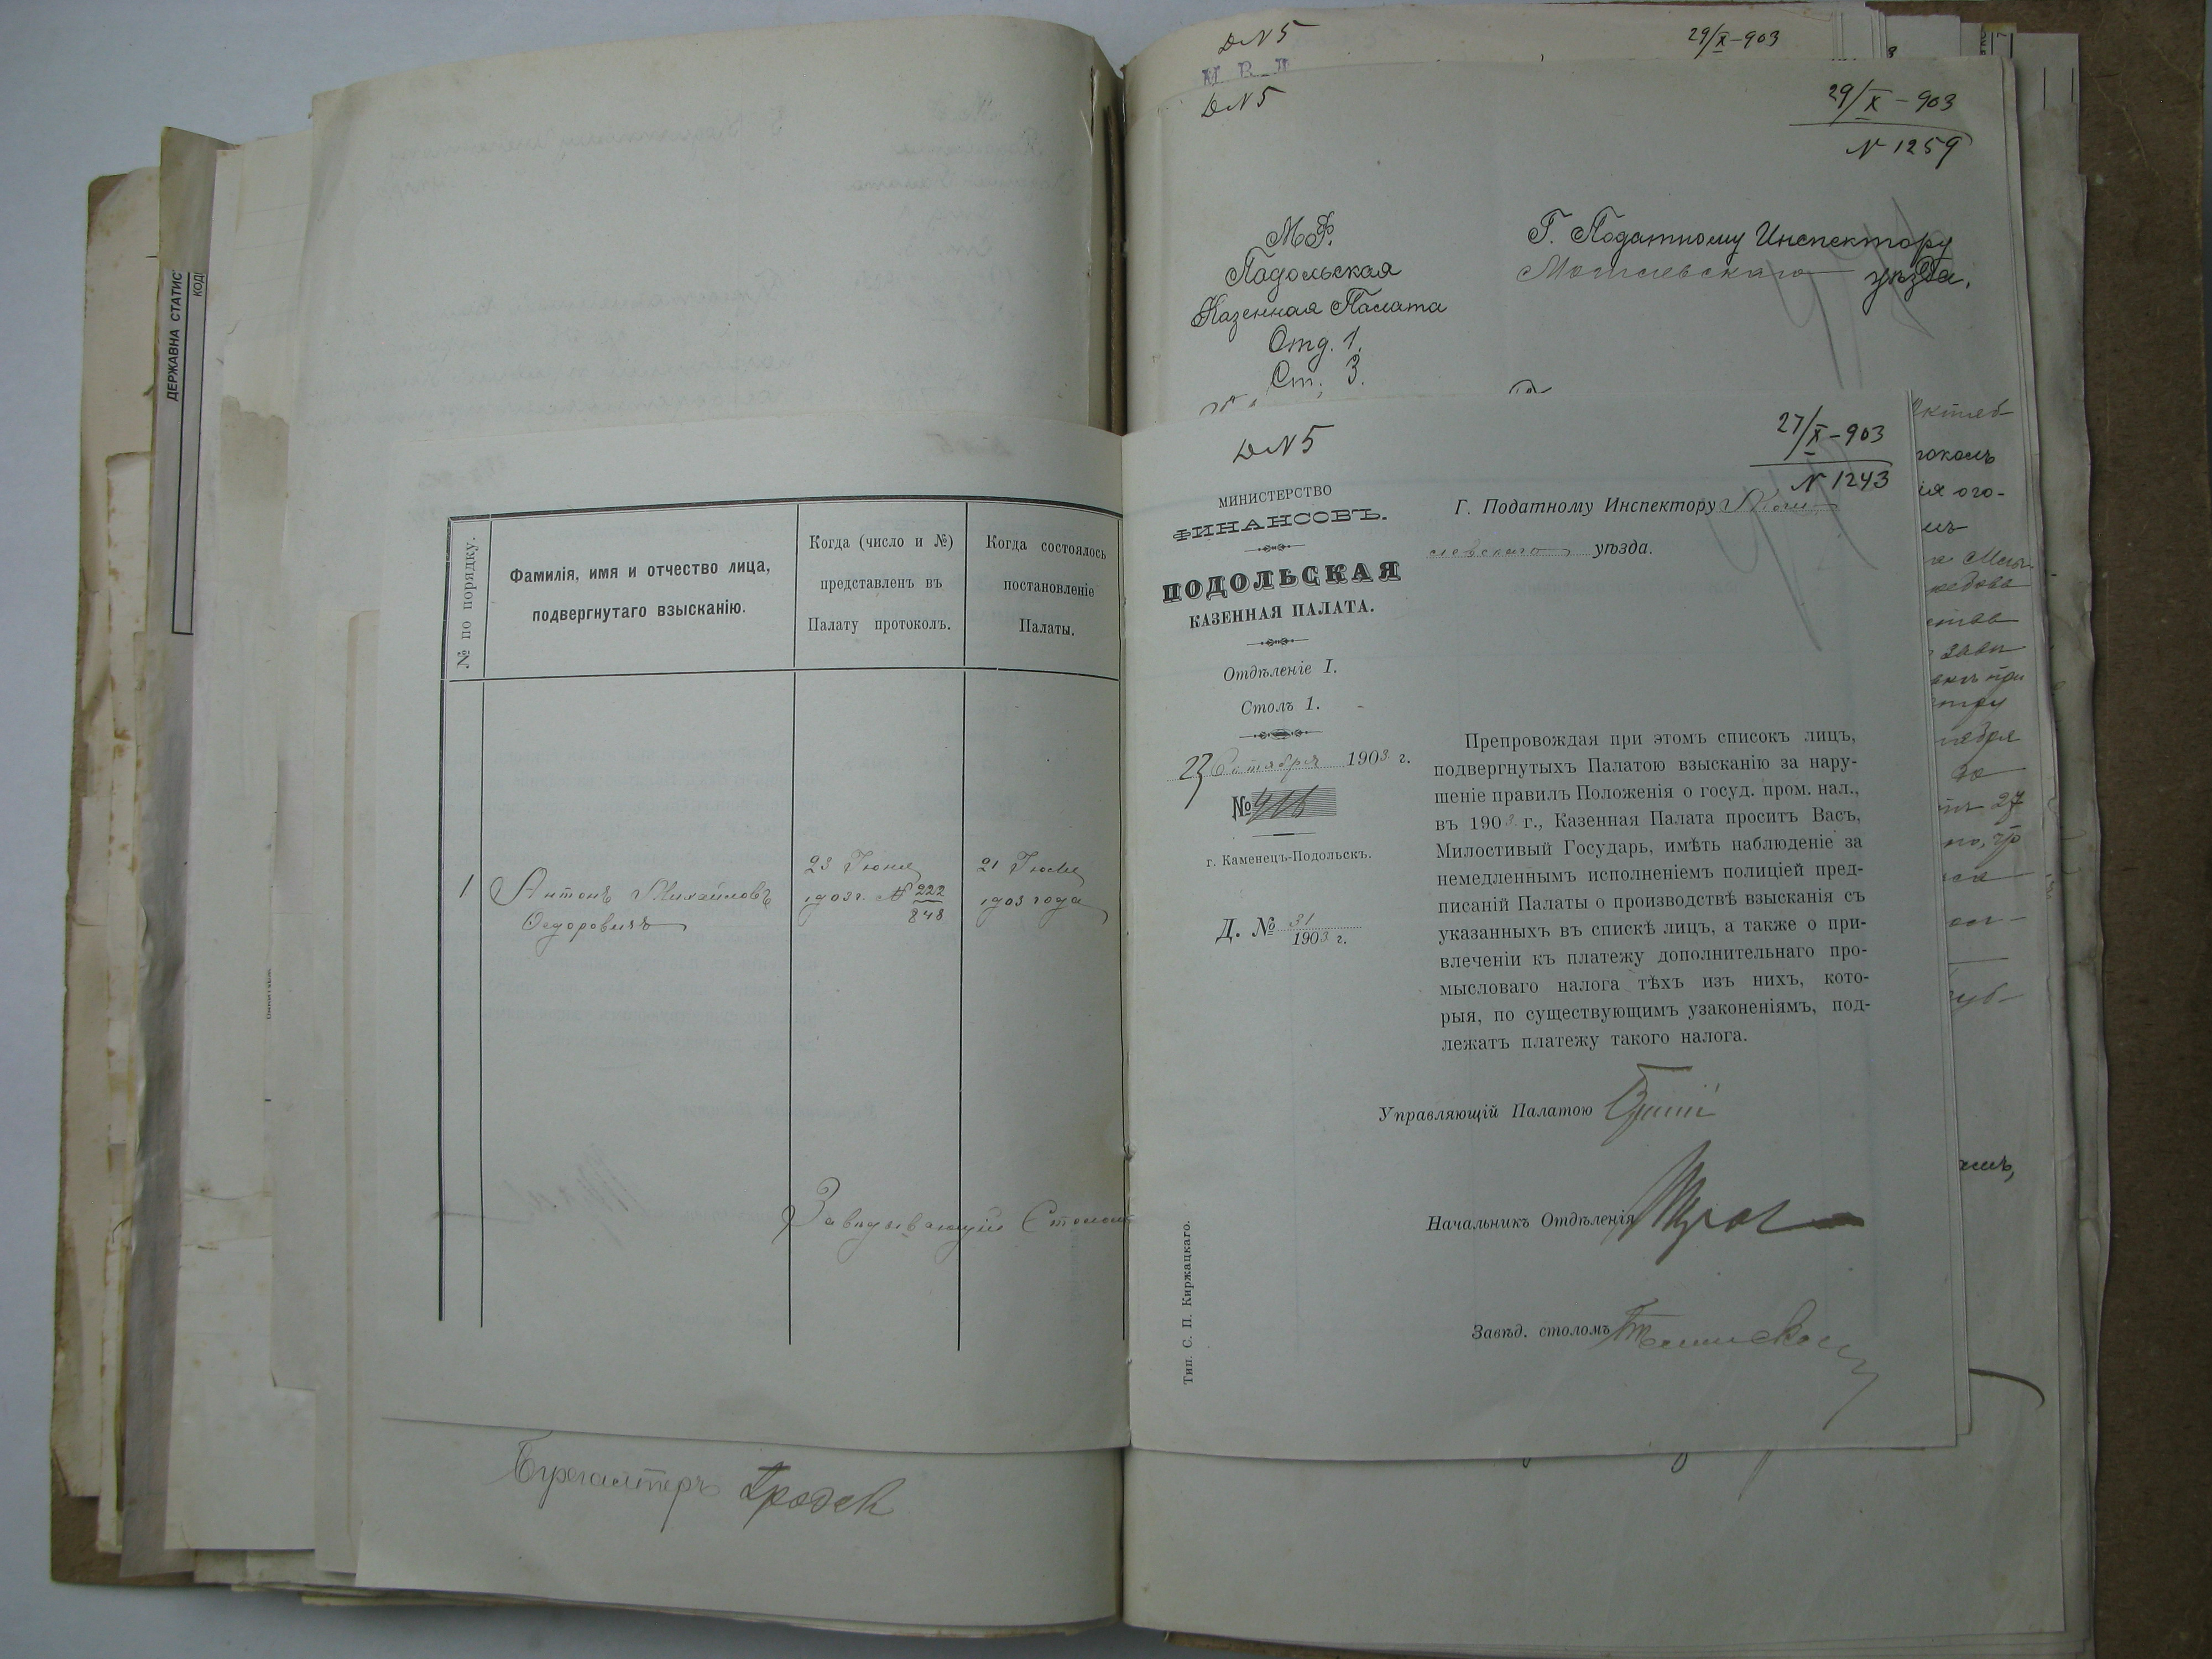 ДЕРЖАВНА СТАТИС
КОД
№ по порядку.
Фамилія, имя и отчество лица,
подвергнутаго взысканію.
Когда (число и №)
представленъ въ
Палату протоколъ.
Когда состоялось
постановленіе
Палаты.
1
Антонъ Михайловъ
Федоровичъ
23 Іюня
1903 г. № 222
848
21 Іюля
1903 года
Завѣдывающій Столомъ
Бухгалтеръ
Д N 5
29/X-903
Д N 5
29/X-903
N 1259
М.Ф.
Подольская
Казенная Палата
Отд. 1.
Ст. 3.
Г. Податному Инспектору
Могилевскаго уѣзда.
Д N 5
27/X-903
N 1243
МИНИСТЕРСТВО
ФИНАНСОВЪ.
ПОДОЛЬСКАЯ
КАЗЕННАЯ ПАЛАТА.
Отдѣленіе I.
Столъ 1.
23 Октября 1903 г.
№ 416
г. Каменецъ-Подольскъ.
Д. № 31
1903 г.
Г. Податному Инспектору Моги
левскаго уѣзда.
Препровождая при этомъ списокъ лицъ,
подвергнутыхъ Палатою взысканію за нару-
шеніе правилъ Положенія о госуд. пром. нал.,
въ 1903 г., Казенная Палата проситъ Васъ,
Милостивый Государь, имѣть наблюденіе за
немедленнымъ исполненіемъ полиціей пред-
писаній Палаты о производствѣ взысканія съ
указанныхъ въ спискѣ лицъ, а также о при-
влеченіи къ платежу дополнительнаго про-
мысловаго налога тѣхъ изъ нихъ, кото-
рыя, по существующимъ узаконеніямъ, под-
лежатъ платежу такого налога.
Управляющій Палатою
Начальникъ Отдѣленія
Завѣд. столомъ
Тип. С. П. Киржацкаго.